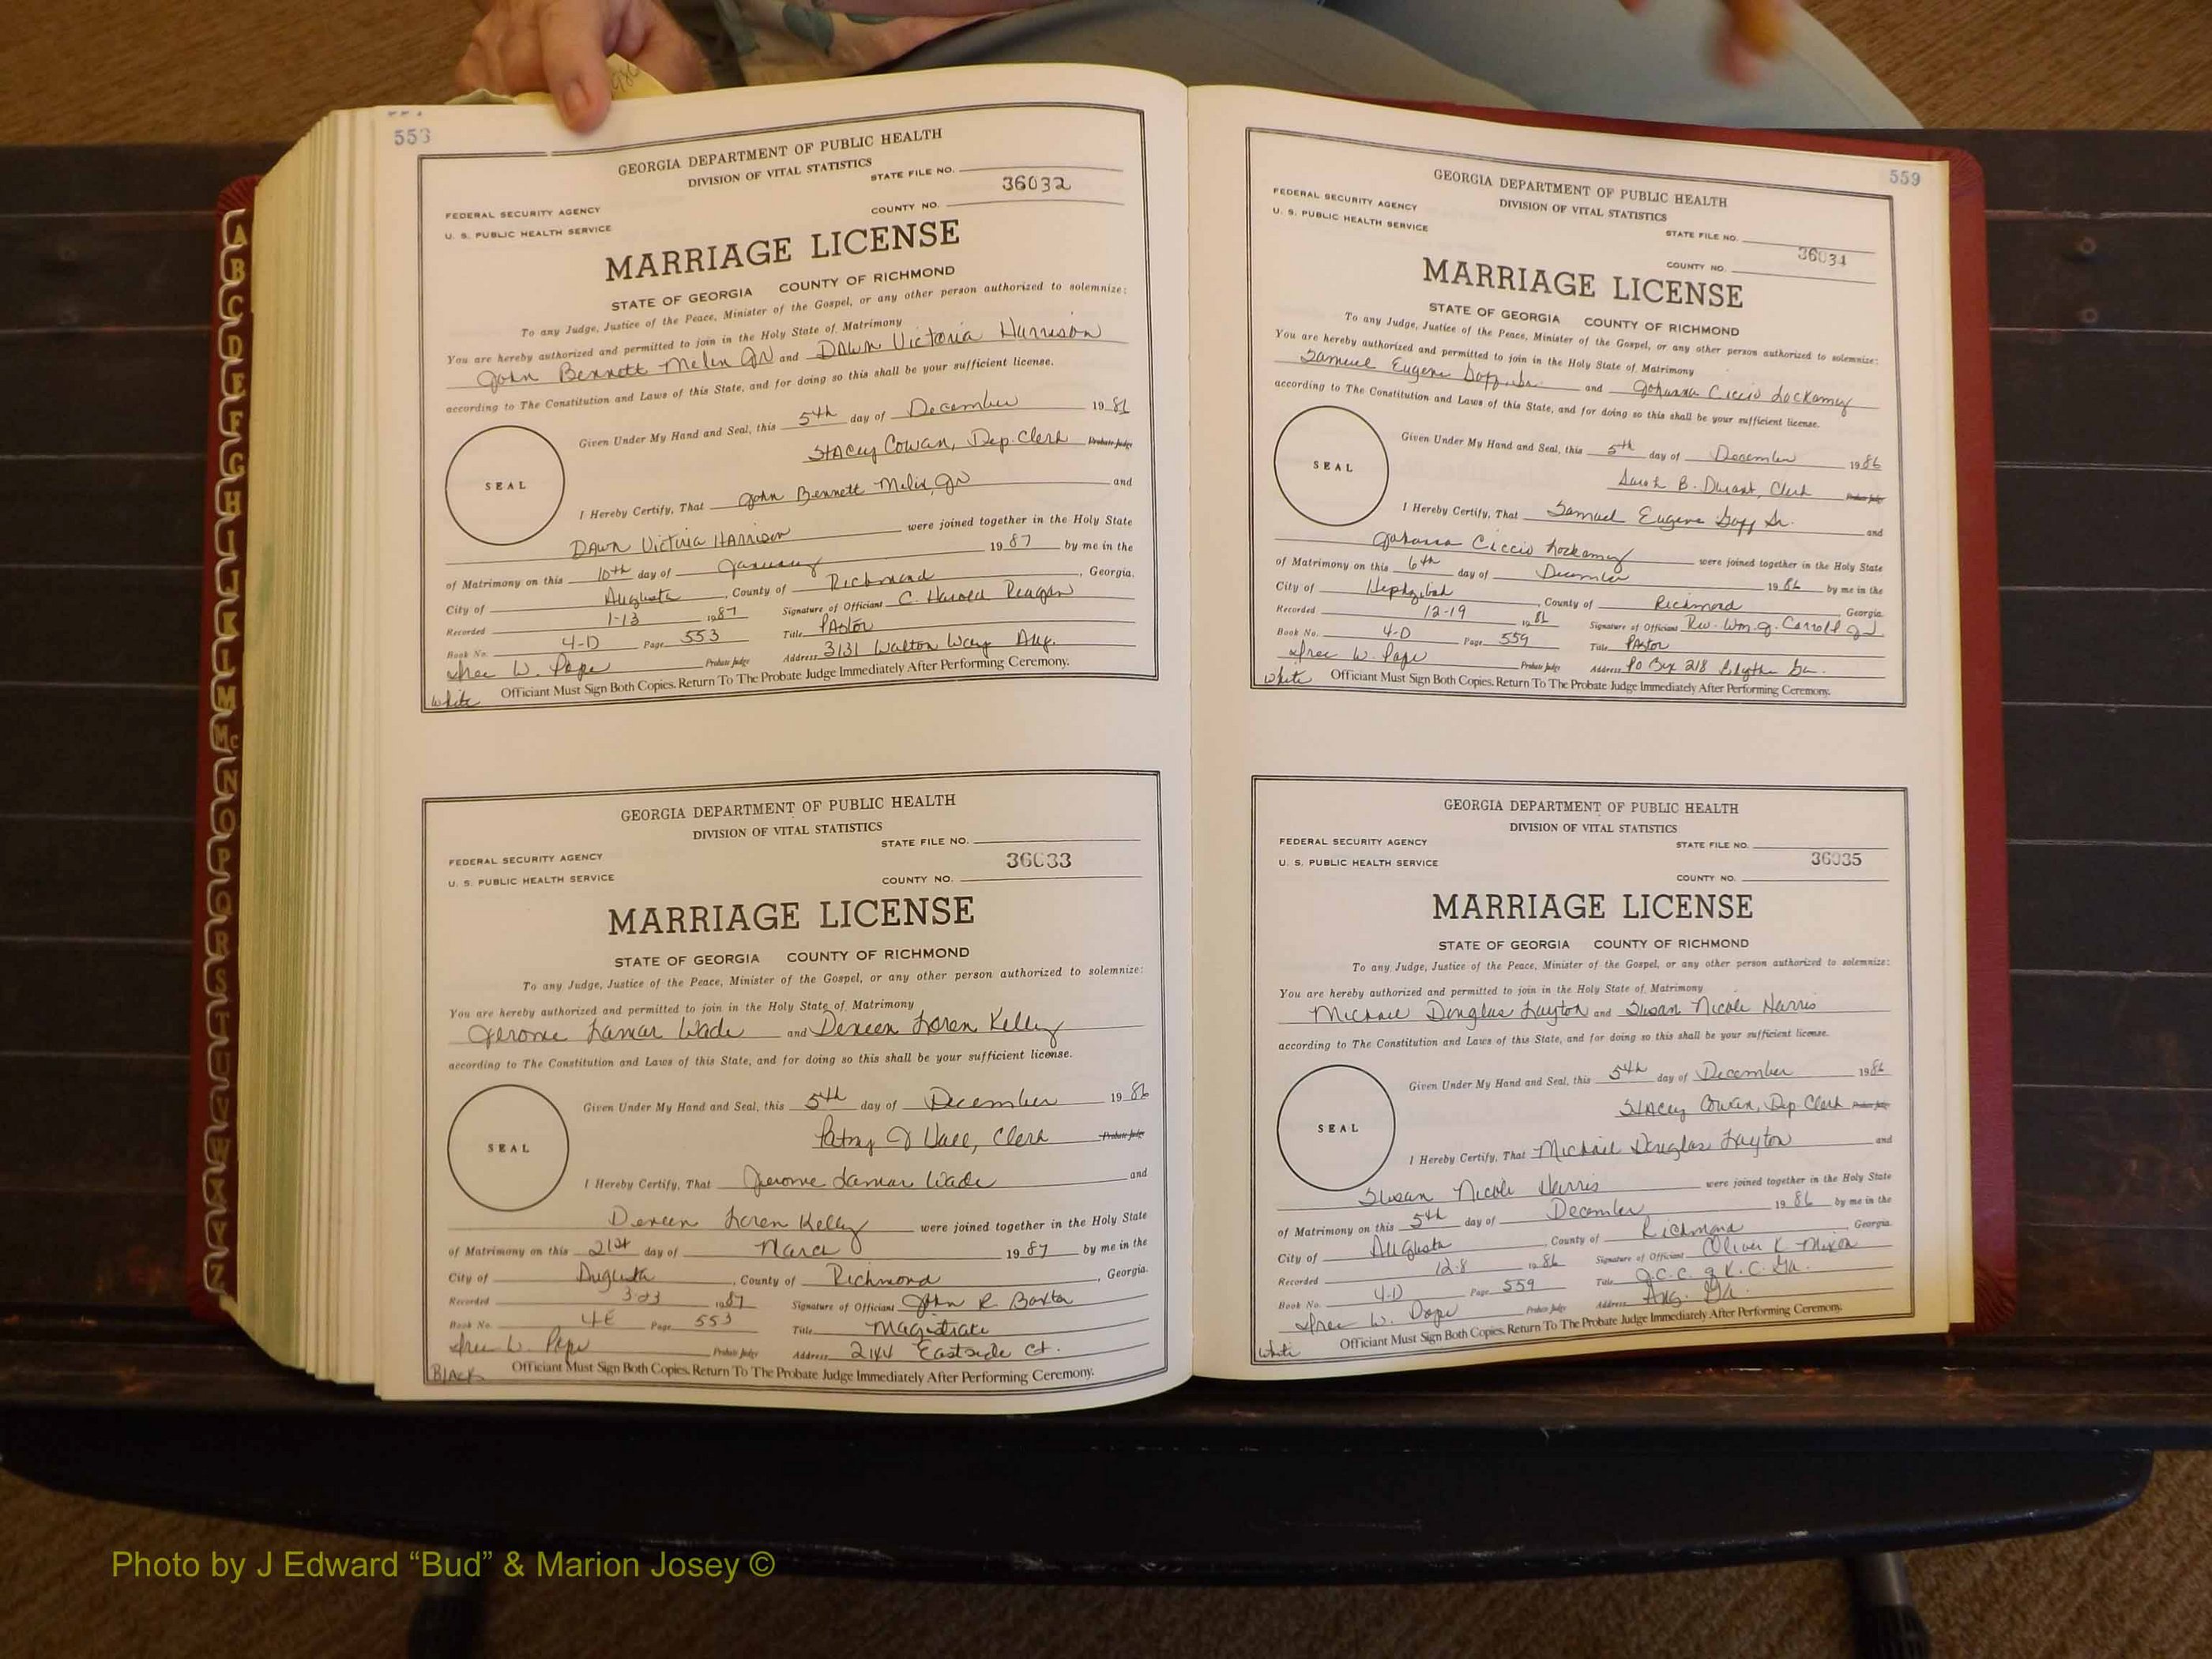 553
GEORGIA DEPARTMENT OF PUBLIC HEALTH
DIVISION OF VITAL STATISTICS
STATE FILE NO.
36032
FEDERAL SECURITY AGENCY
U. S. PUBLIC HEALTH SERVICE
COUNTY NO.
MARRIAGE LICENSE
STATE OF GEORGIA COUNTY OF RICHMOND
To any Judge, Justice of the Peace, Minister of the Gospel, or any other person authorized to solemnize:
You are hereby authorized and permitted to join in the Holy State of Matrimony
John Bennett Melin Jr and Dawn Victoria Harrison
according to The Constitution and Laws of this State, and for doing so this shall be your sufficient license.
Given Under My Hand and Seal, this 5th day of December 1986
Stacey Cowan, Dep. Clerk Probate Judge
SEAL
I Hereby Certify, That John Bennett Melin, Jr and
Dawn Victoria Harrison were joined together in the Holy State
of Matrimony on this 10th day of January 1987 by me in the
City of Augusta, County of Richmond, Georgia.
Recorded 1-13 1987 Signature of Officiant C. Harold Reagan
Book No. 4-D Page 553 Title Pastor
W. Pope Probate Judge Address 3131 Walton Way Aug.
White Officiant Must Sign Both Copies. Return To The Probate Judge Immediately After Performing Ceremony.
GEORGIA DEPARTMENT OF PUBLIC HEALTH
DIVISION OF VITAL STATISTICS
STATE FILE NO.
36033
FEDERAL SECURITY AGENCY
U. S. PUBLIC HEALTH SERVICE
COUNTY NO.
MARRIAGE LICENSE
STATE OF GEORGIA COUNTY OF RICHMOND
To any Judge, Justice of the Peace, Minister of the Gospel, or any other person authorized to solemnize:
You are hereby authorized and permitted to join in the Holy State of Matrimony
Jerome Lamar Wade and Dereen Loren Kelly
according to The Constitution and Laws of this State, and for doing so this shall be your sufficient license.
Given Under My Hand and Seal, this 5th day of December 1986
Patsy J Hall, Clerk Probate Judge
SEAL
I Hereby Certify, That Jerome Lamar Wade and
Dereen Loren Kelly were joined together in the Holy State
of Matrimony on this 21st day of March 1987 by me in the
City of Augusta, County of Richmond, Georgia.
Recorded 3-23 1987 Signature of Officiant John R Baxter
Book No. 4E Page 553 Title Magistrate
W. Pope Probate Judge Address 2144 Eastside Ct.
Black Officiant Must Sign Both Copies. Return To The Probate Judge Immediately After Performing Ceremony.
559
GEORGIA DEPARTMENT OF PUBLIC HEALTH
DIVISION OF VITAL STATISTICS
STATE FILE NO.
36034
FEDERAL SECURITY AGENCY
U. S. PUBLIC HEALTH SERVICE
COUNTY NO.
MARRIAGE LICENSE
STATE OF GEORGIA COUNTY OF RICHMOND
To any Judge, Justice of the Peace, Minister of the Gospel, or any other person authorized to solemnize:
You are hereby authorized and permitted to join in the Holy State of Matrimony
Samuel Eugene Sr. and Johanna Ciccio Lockamy
according to The Constitution and Laws of this State, and for doing so this shall be your sufficient license.
Given Under My Hand and Seal, this 5th day of December 1986
Sarah B. Durant, Clerk Probate Judge
SEAL
I Hereby Certify, That Samuel Eugene Sr. and
Johanna Ciccio Lockamy were joined together in the Holy State
of Matrimony on this 6th day of December 1986 by me in the
City of Hephzibah, County of Richmond Georgia.
Recorded 12-19 1986 Signature of Officiant Rev. Wm. J. Carroll Jr
Book No. 4-D Page 559 Title Pastor
W. Pope Probate Judge Address PO Box 218 Blythe Ga.
White Officiant Must Sign Both Copies. Return To The Probate Judge Immediately After Performing Ceremony.
GEORGIA DEPARTMENT OF PUBLIC HEALTH
DIVISION OF VITAL STATISTICS
STATE FILE NO.
36035
FEDERAL SECURITY AGENCY
U. S. PUBLIC HEALTH SERVICE
COUNTY NO.
MARRIAGE LICENSE
STATE OF GEORGIA COUNTY OF RICHMOND
To any Judge, Justice of the Peace, Minister of the Gospel, or any other person authorized to solemnize:
You are hereby authorized and permitted to join in the Holy State of Matrimony
Michael Douglas Layton and Susan Nicole Harris
according to The Constitution and Laws of this State, and for doing so this shall be your sufficient license.
Given Under My Hand and Seal, this 5th day of December 1986
Stacey Cowan, Dep Clerk Probate Judge
SEAL
I Hereby Certify, That Michael Douglas Layton and
Susan Nicole Harris were joined together in the Holy State
of Matrimony on this 5th day of December 1986 by me in the
City of Augusta, County of Richmond, Georgia.
Recorded 12-8 1986 Signature of Officiant Oliver K Mixon
Book No. 4-D Page 559 Title J.C.C. of R.C. Ga.
W. Pope Probate Judge Address Aug. Ga.
White Officiant Must Sign Both Copies. Return To The Probate Judge Immediately After Performing Ceremony.
A
B
C
D
E
F
G
H
I
J
K
L
M
Mc
N
O
P
Q
R
S
T
U
V
W
X
Y
Z
Photo by J Edward “Bud” & Marion Josey ©